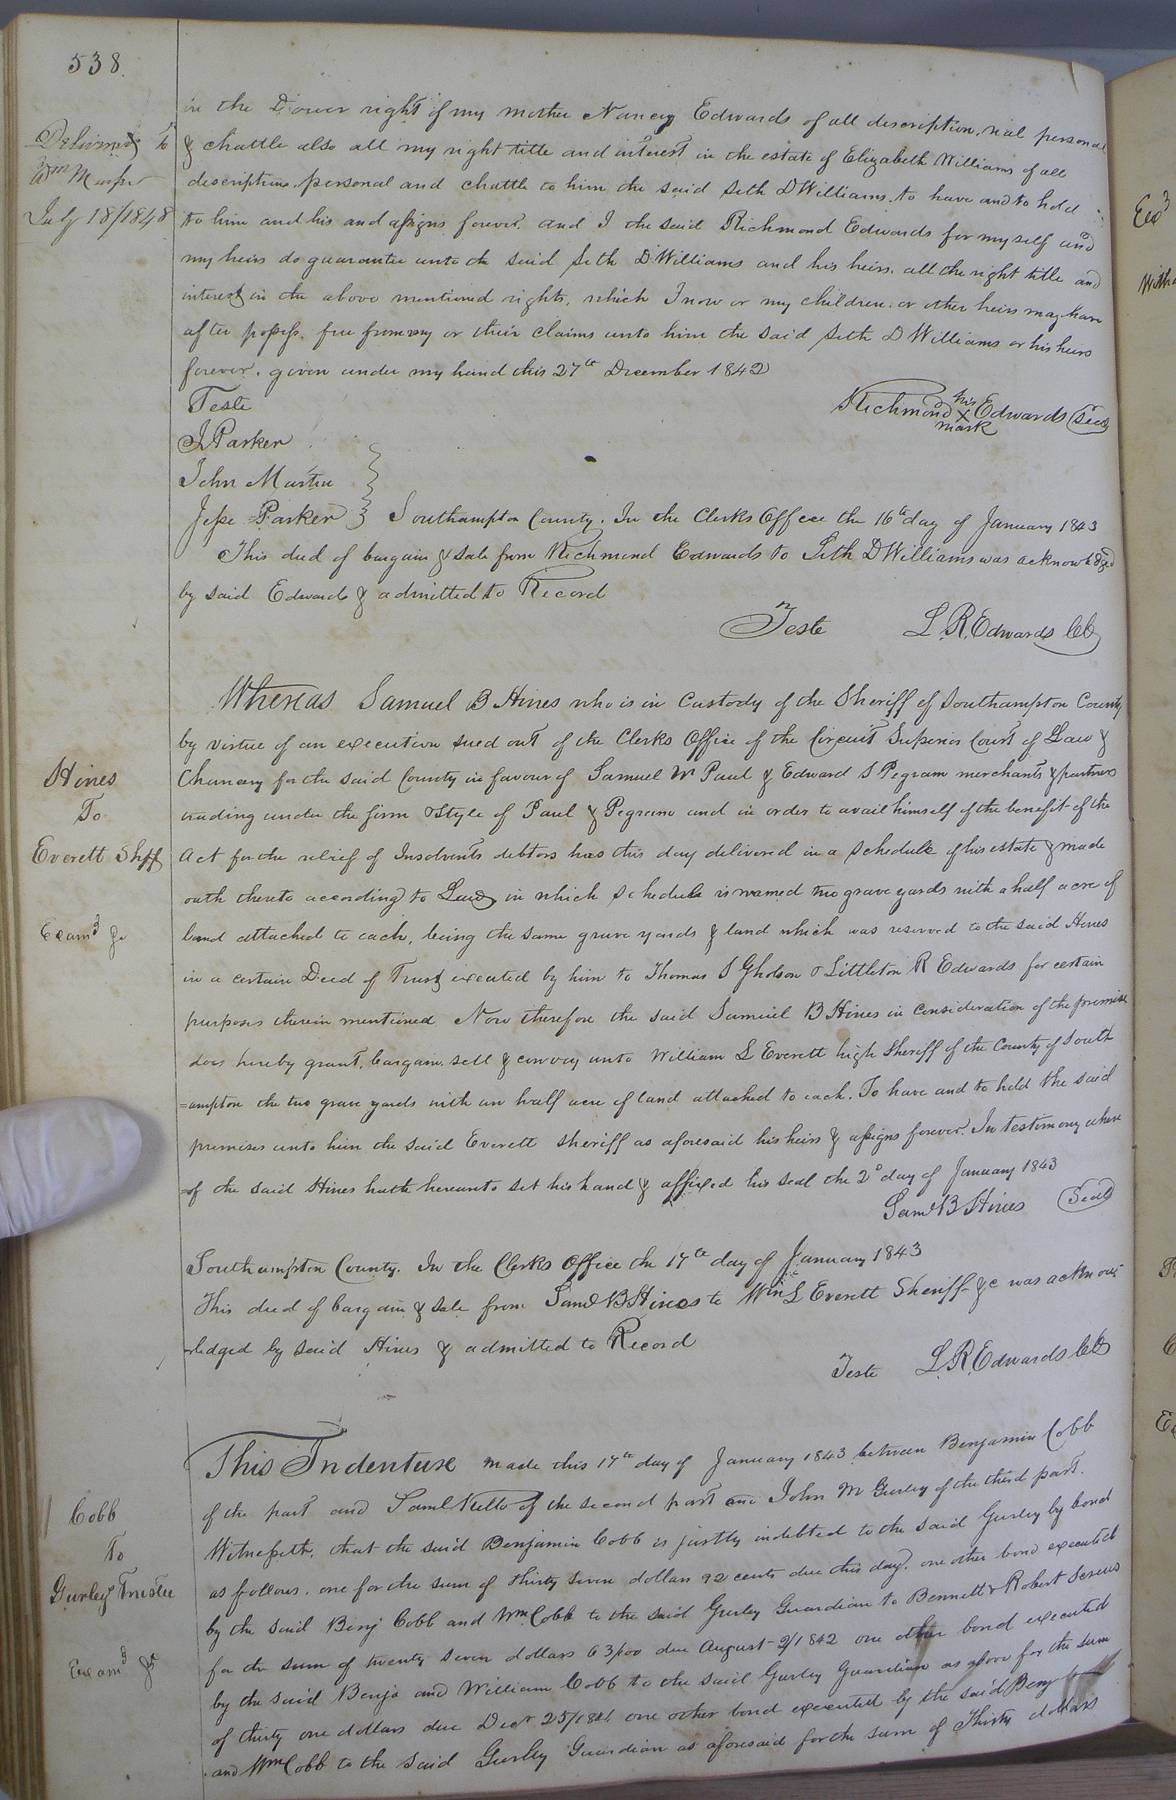 538.
in the Dower right of my mother Nancy Edwards of all description, rial personal
& chattle also all my right title and interest in the estate of Elizabeth Williams of all
description personal and chattle to him the said Seth D Williams, to have and to hold
to him and his and assigns forever, and I the said Richmond Edwards for my self and
my heirs do guarantee unto the said Seth D Williams and his heirs, all the right title and
interest in the above mentioned rights, which I now or my children, or other heirs may have
after possess, free from my or their claims unto him the said Seth D Williams or his heirs
forever, given under my hand this 27th December 1842
Delivered to
Wm
July 18/1848
Teste
Richmond his X mark Edwards Seal
J Parker
John Martin
Jesse Parker } Southampton County. In the Clerks Office the 16th day of January 1843
This deed of bargain & sale from Richmond Edwards to Seth D Williams was acknowledged
by said Edwards & admitted to Record
Teste L. R. Edwards
Whereas Samuel B Hines who is in Custody of the Sheriff of Southampton County
by virtue of an execution sued out of the Clerks Office of the Circuit Superior Court of Law &
Chancery for the said County in favour of Samuel W Paul & Edward S Pegram merchants & partners
trading under the firm & Style of Paul & Pegram and in order to avail himself of the benefit of the
Act for the relief of Insolvents debtors has this day delivered in a schedule of his estate & made
oath thereto according to Law in which schedule is named two grave yards with a half acre of
land attached to each, being the same grave yards & land which was reserved to the said Hines
in a certain Deed of Trust executed by him to Thomas S Gholson & Littleton R Edwards for certain
purposes therein mentioned Now therefore the said Samuel B Hines in consideration of the premises
does hereby grant, bargain, sell & convey unto William L Everett high Sheriff of the County of South
=ampton the two grave yards with an half acre of land attached to each. To have and to hold the said
premises unto him the said Everett sheriff as aforesaid his heirs & assigns forever. In testimony where
=of the said Hines hath hereunto set his hand & affixed his seal the 2d day of January 1843
Saml B Hines Seal
Hines
To
Everett Shff
Examd
Southampton County. In the Clerks Office the 17th day of January 1843
This deed of bargain & sale from Saml B Hines to Wm L Everett Sheriff &c was acknow-
-ledged by said Hines & admitted to Record
Teste L. R. Edwards
This Indenture made this 17th day of January 1843 between Benjamin Cobb
of the part and Saml of the second part and John M Gurley of the third part.
Witnesseth, that the said Benjamin Cobb is justly indebted to the said Gurley by bond
as follows. one for the sum of thirty seven dollars 92 cents due this day, one other bond executed
by the said Benj Cobb and Wm Cobb to the said Gurley Guardian to Bennett & Robert
for the sum of twenty seven dollars 63/100 due August 9/1842 one other bond executed
by the said Benja and William Cobb to the said Gurley Guardian as above for the sum
of thirty one dollars due Decr 25/1841 one other bond executed by the said Benj
and Wm Cobb to the said Gurley Guardian as aforesaid for the sum of Thirty dollars
Cobb
To
Gurleys Trustee
Examd